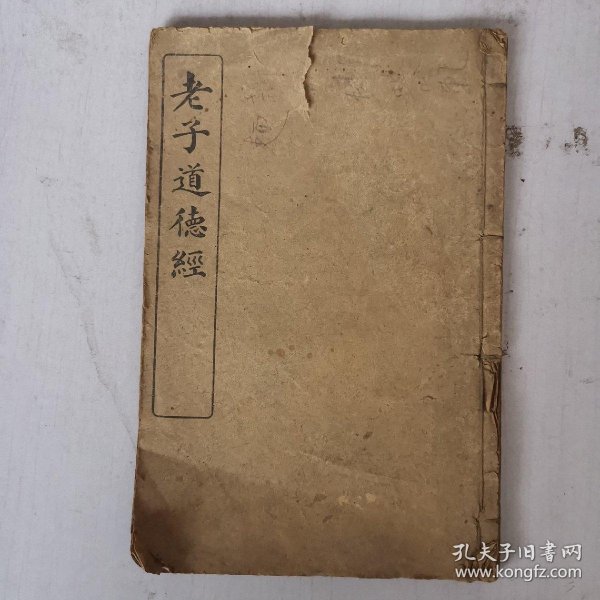 老子道德經
孔夫子旧書网
www.kongfz.com